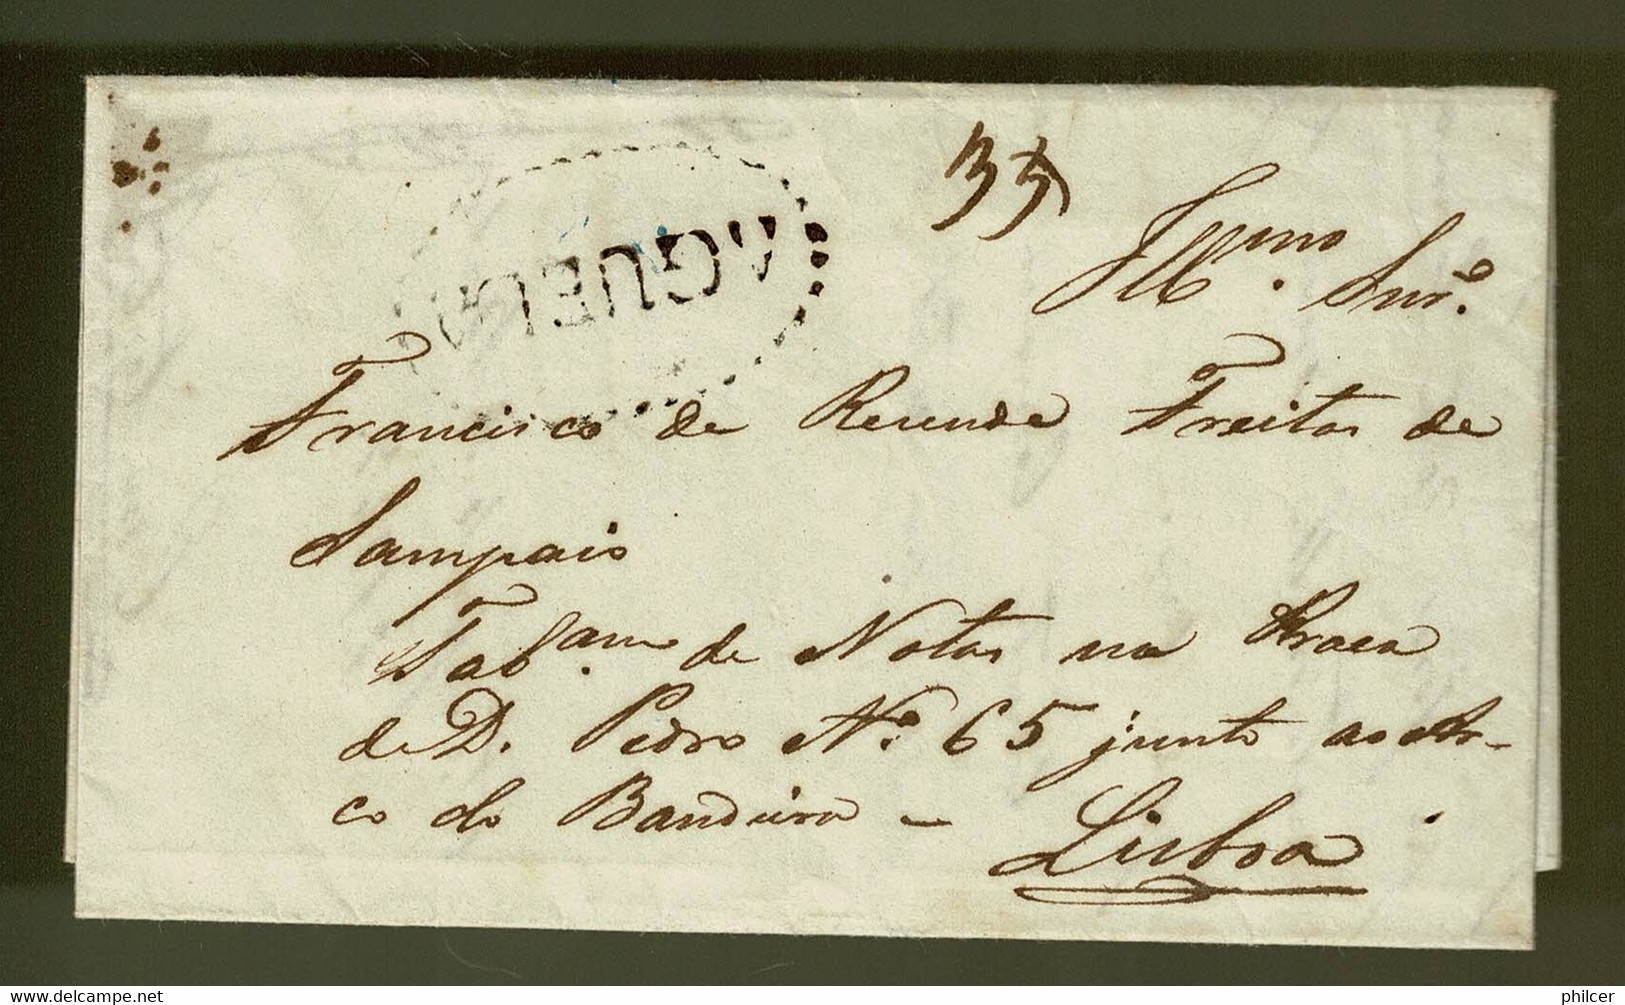 35
AGUEDA
Illmo. Snr.
Francisco de Resende Freitas de
Sampaio
Tabam. de Notas na Praca
de D. Pedro No. 65 junto ao Ar-
co do Bandeira -
Lisboa
delcampe.net
philcer